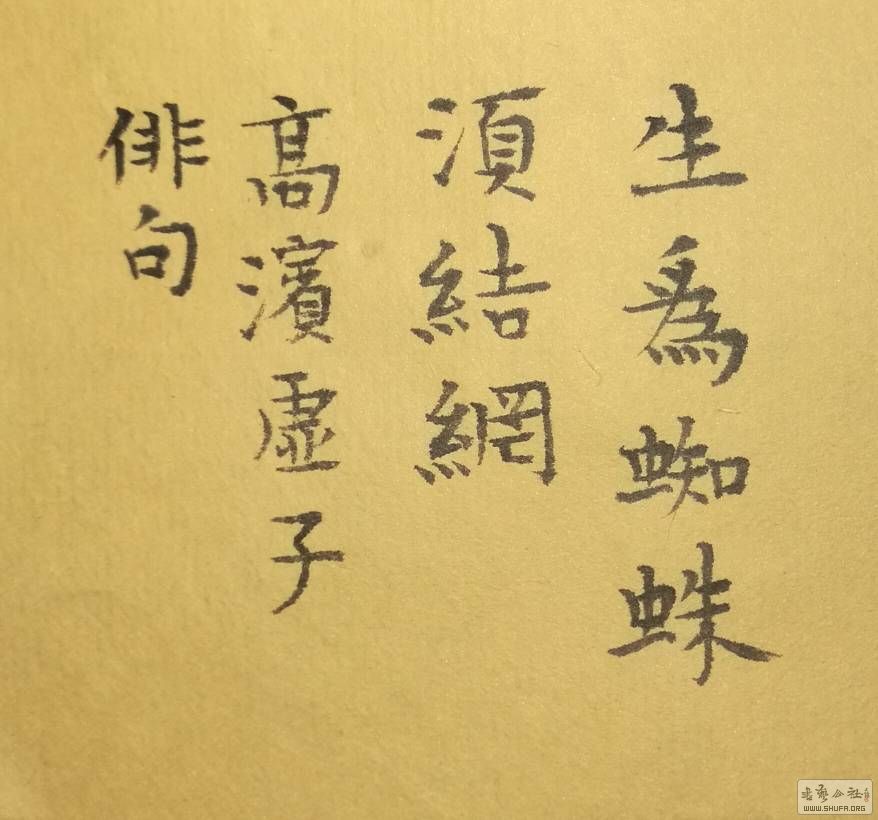 生爲蜘蛛
須結網
高濱虛子
俳句
书艺公社
WWW.SHUFA.ORG